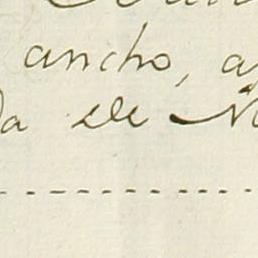 ancho, a
da de N